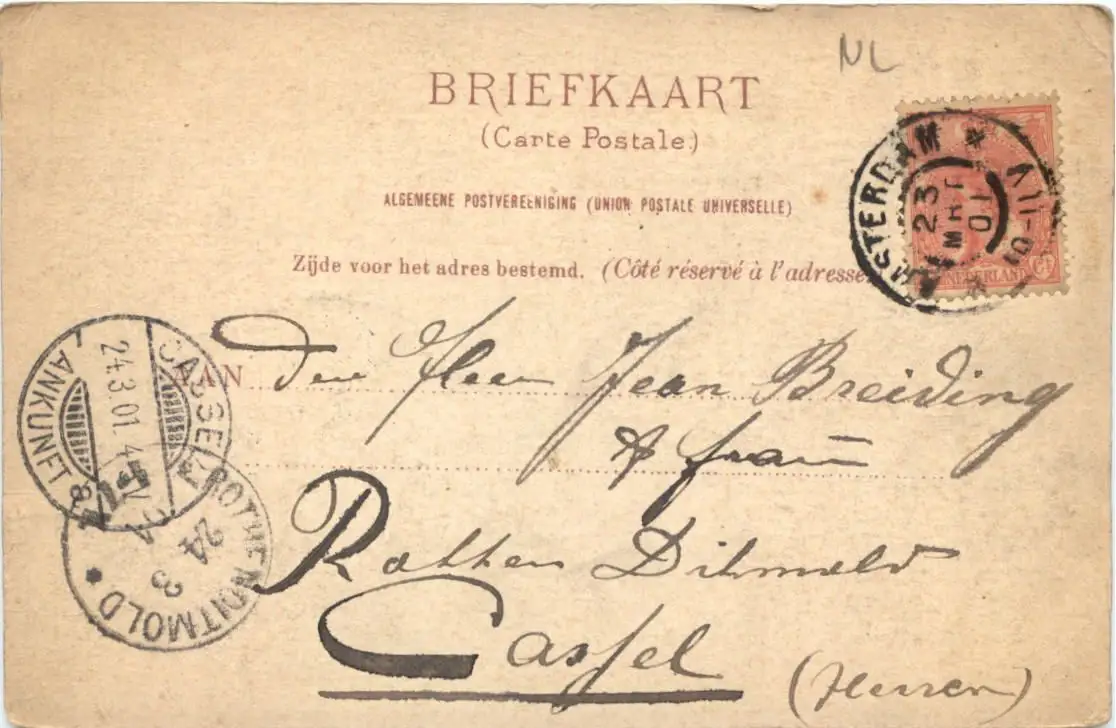 NL
BRIEFKAART
(Carte Postale.)
ALGEMEENE POSTVEREENIGING (UNION POSTALE UNIVERSELLE)
Zijde voor het adres bestemd. (Côté réservé à l'adresse.
AMSTERDAM
23
MRT
01
NEDERLAND Ct
AAN den Heer Jean Breiding
& frau
Rothen Ditmold
Cassel
(Hessen)
CASSEL
24.3.01. 4
ANKUNFT
ROTHENDITMOLD
24
3